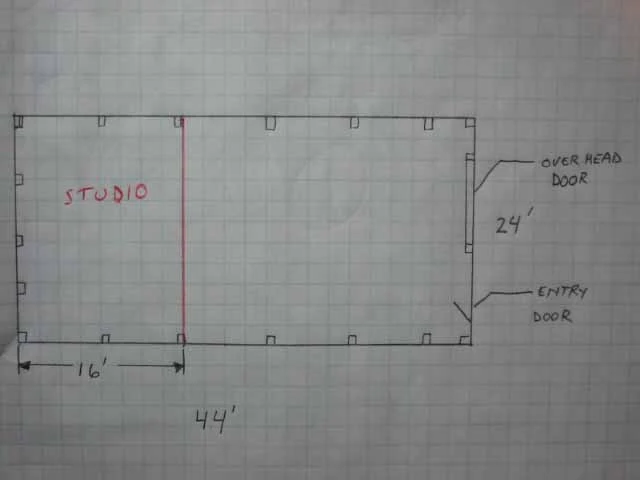 STUDIO
OVERHEAD
DOOR
24'
ENTRY
DOOR
16'
44'